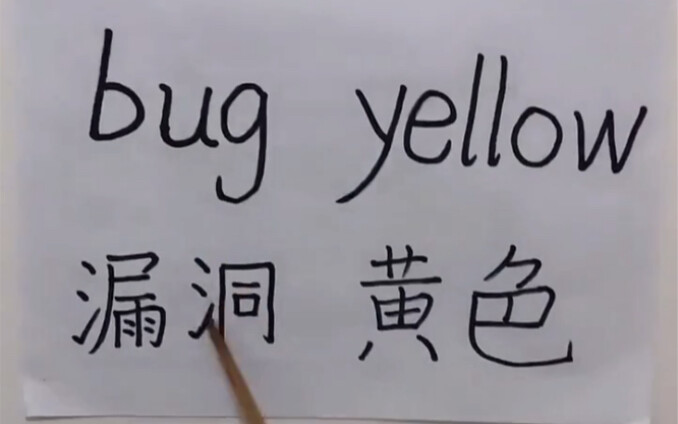 bug yellow
漏洞 黄色